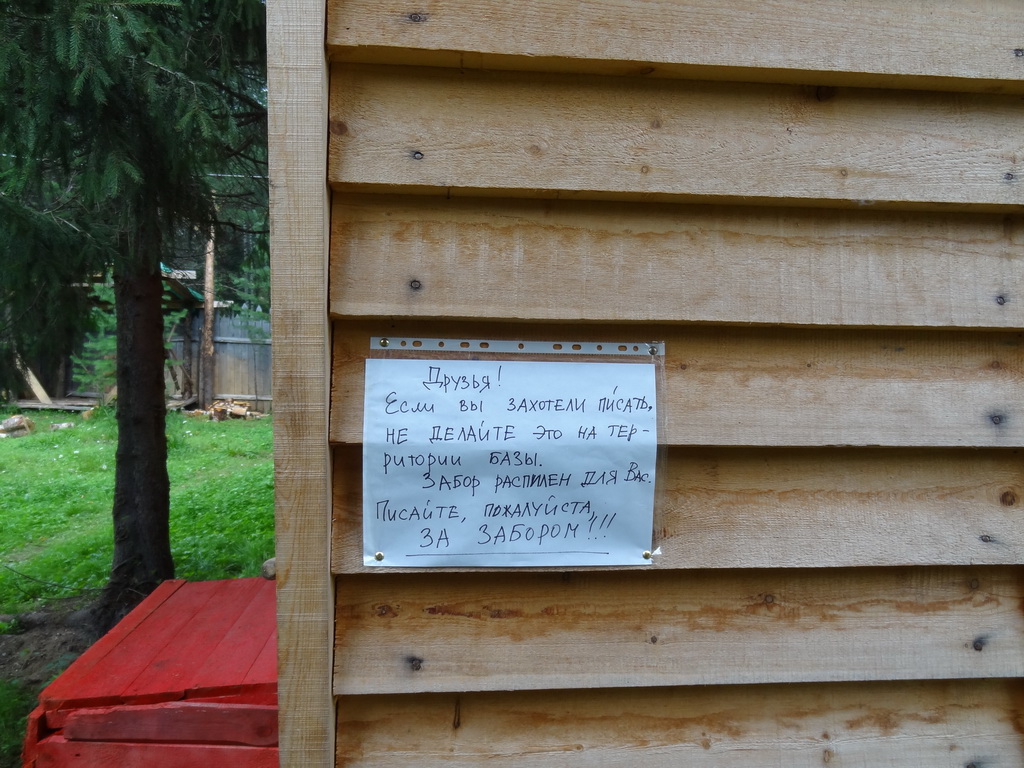 Друзья!
Если вы захотели пи́сать,
не делайте это на тер-
ритории базы.
Забор распилен для Вас.
Писайте, пожалуйста,
за забором!!!